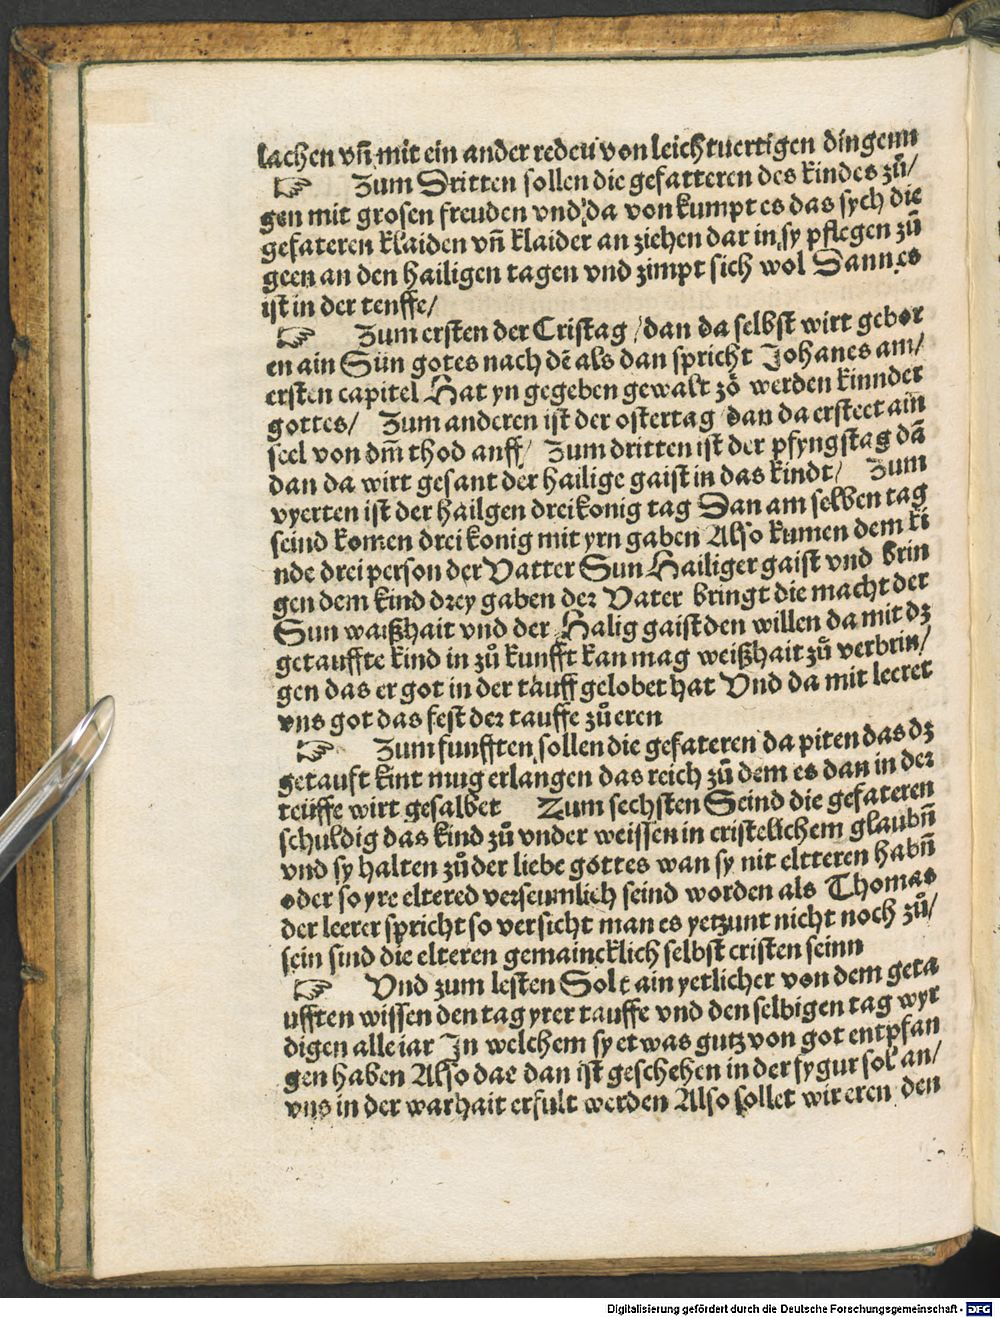 lachen vn̄ mit ein ander redeu von leichtuertigen dingenn
☞ Zum Dritten sollen die gefatteren des kindes zů/
gen mit grosen freuden vnd da von kumpt es das sych die
gefateren klaiden vn̄ klaider an ziehen dar in sy pflegen zů
geen an den hailigen tagen vnd zimpt sich wol Dann es
ist in der tenffe/
☞ Zum ersten der Cristag / dan da selbst wirt gebor
en ain Sün gotes nach dē als dan spricht Johanes am/
ersten capitel Hat yn gegeben gewalt zo̊ werden kinnder
gottes/ Zum anderen ist der ostertag dan da ersteet ain
seel von dm̄ thod anff/ Zum dritten ist der pfyngstag dā
dan da wirt gesant der hailige gaist in das kindt/ Zum
vyerten ist der hailgen drei konig tag Dan am selben tag
seind komen drei konig mit yrn gaben Also kumen dem ki
nde drei person der Vatter Sun Hailiger gaist vnd brin
gen dem kind drey gaben der Vater bringt die macht der
Sun waißhait vnd der Halig gaist den willen da mit dz
getauffte kind in zů kunfft kan mag weißhait zů verbrin/
gen das er got in der tauff gelobet hat Vnd da mit leeret
vns got das fest der tauffe zů eren
☞ Zum funfften sollen die gefateren da piten das dz
getauft kint mug erlangen das reich zů dem es dan in der
teuffe wirt gesalbet Zum sechsten Seind die gefateren
schuldig das kind zů vnder weissen in cristelichem glaubn̄
vnd sy halten zů der liebe gottes wan sy nit eltteren habn̄
oder so yre eltered verseumlich seind worden als Thomas
der leerer spricht so versicht man es yetzunt nicht noch zů/
sein sind die elteren gemaincklich selbst cristen seinn
☞ Vnd zum lesten Solt ain yetlicher von dem geta
ufften wissen den tag yrer tauffe vnd den selbigen tag wyr
digen alle iar In welchem sy etwas gutz von got entpfan
gen haben Also dae dan ist geschehen in der fygur sol an/
vns in der warhait erfult werden Also sollet wir eren den
Digitalisierung gefördert durch die Deutsche Forschungsgemeinschaft - DFG